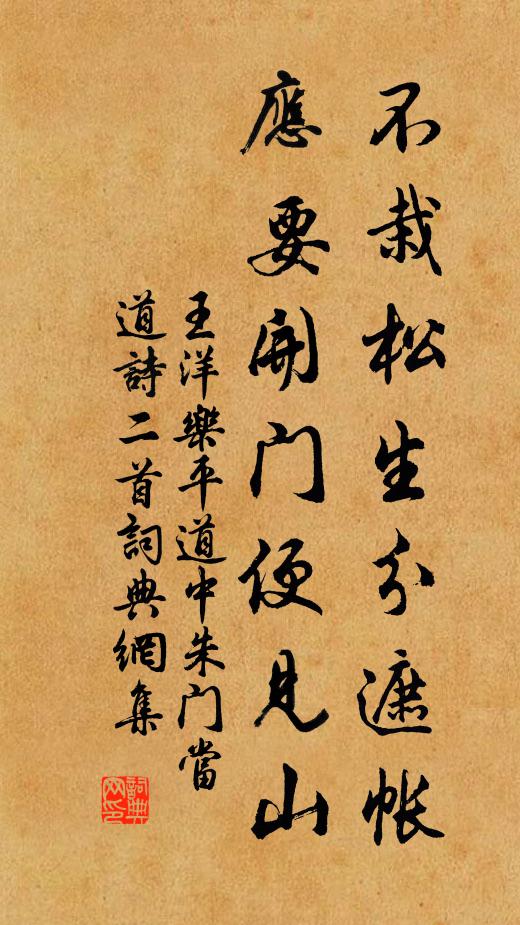 不栽松生分遮帐
應要開门便见山
王洋樂平道中朱门當
道詩二首詞典網集
詞典
网印